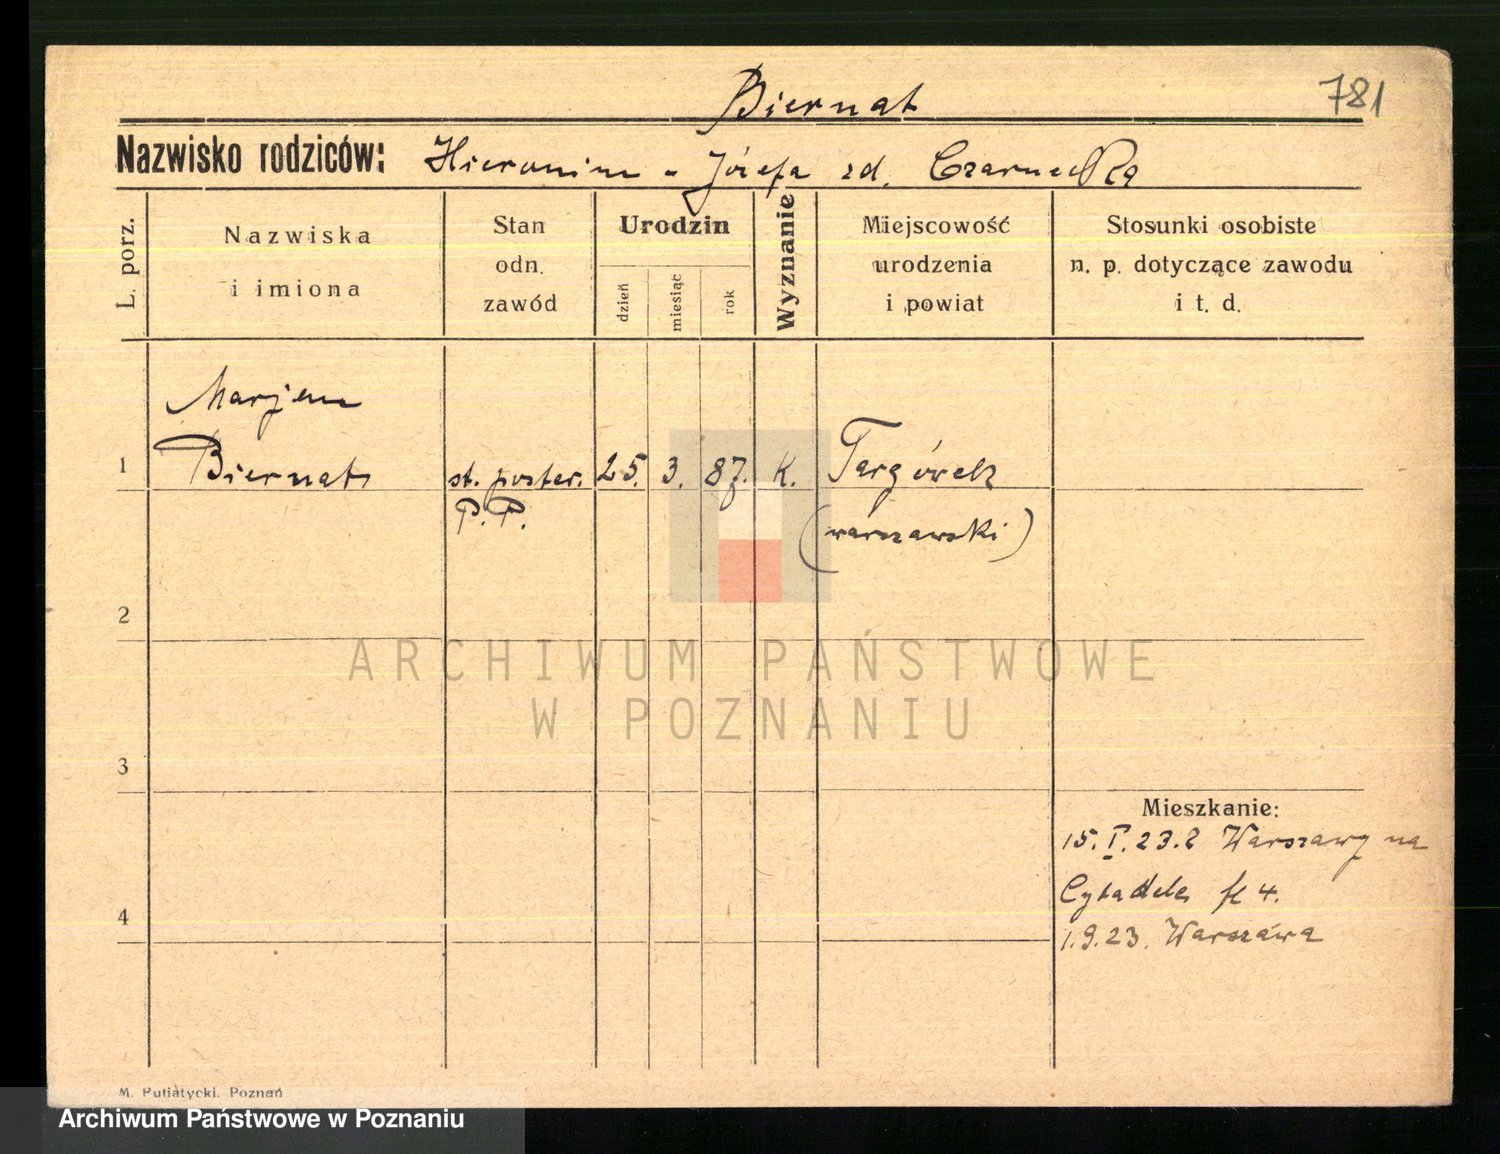 Biernat
781
Nazwisko rodziców: Hieronim - Józefa zd. Czarnecka
L. porz.
Nazwiska
i imiona
Stan
odn.
zawód
Urodzin
dzień
miesiąc
rok
Wyznanie
Miejscowość
urodzenia
i powiat
Stosunki osobiste
n. p. dotyczące zawodu
i t. d.
1
Marjan
Biernat
st. poster.
P.P.
25.
3.
87.
K.
Targówek
(warszawski)
2
ARCHIWUM PAŃSTWOWE
W POZNANIU
3
Mieszkanie:
15.I.23.z Warszawy na
Cytadela 4.
4
1.9.23. Warszawa
M. Putiatycki. Poznań
Archiwum Państwowe w Poznaniu